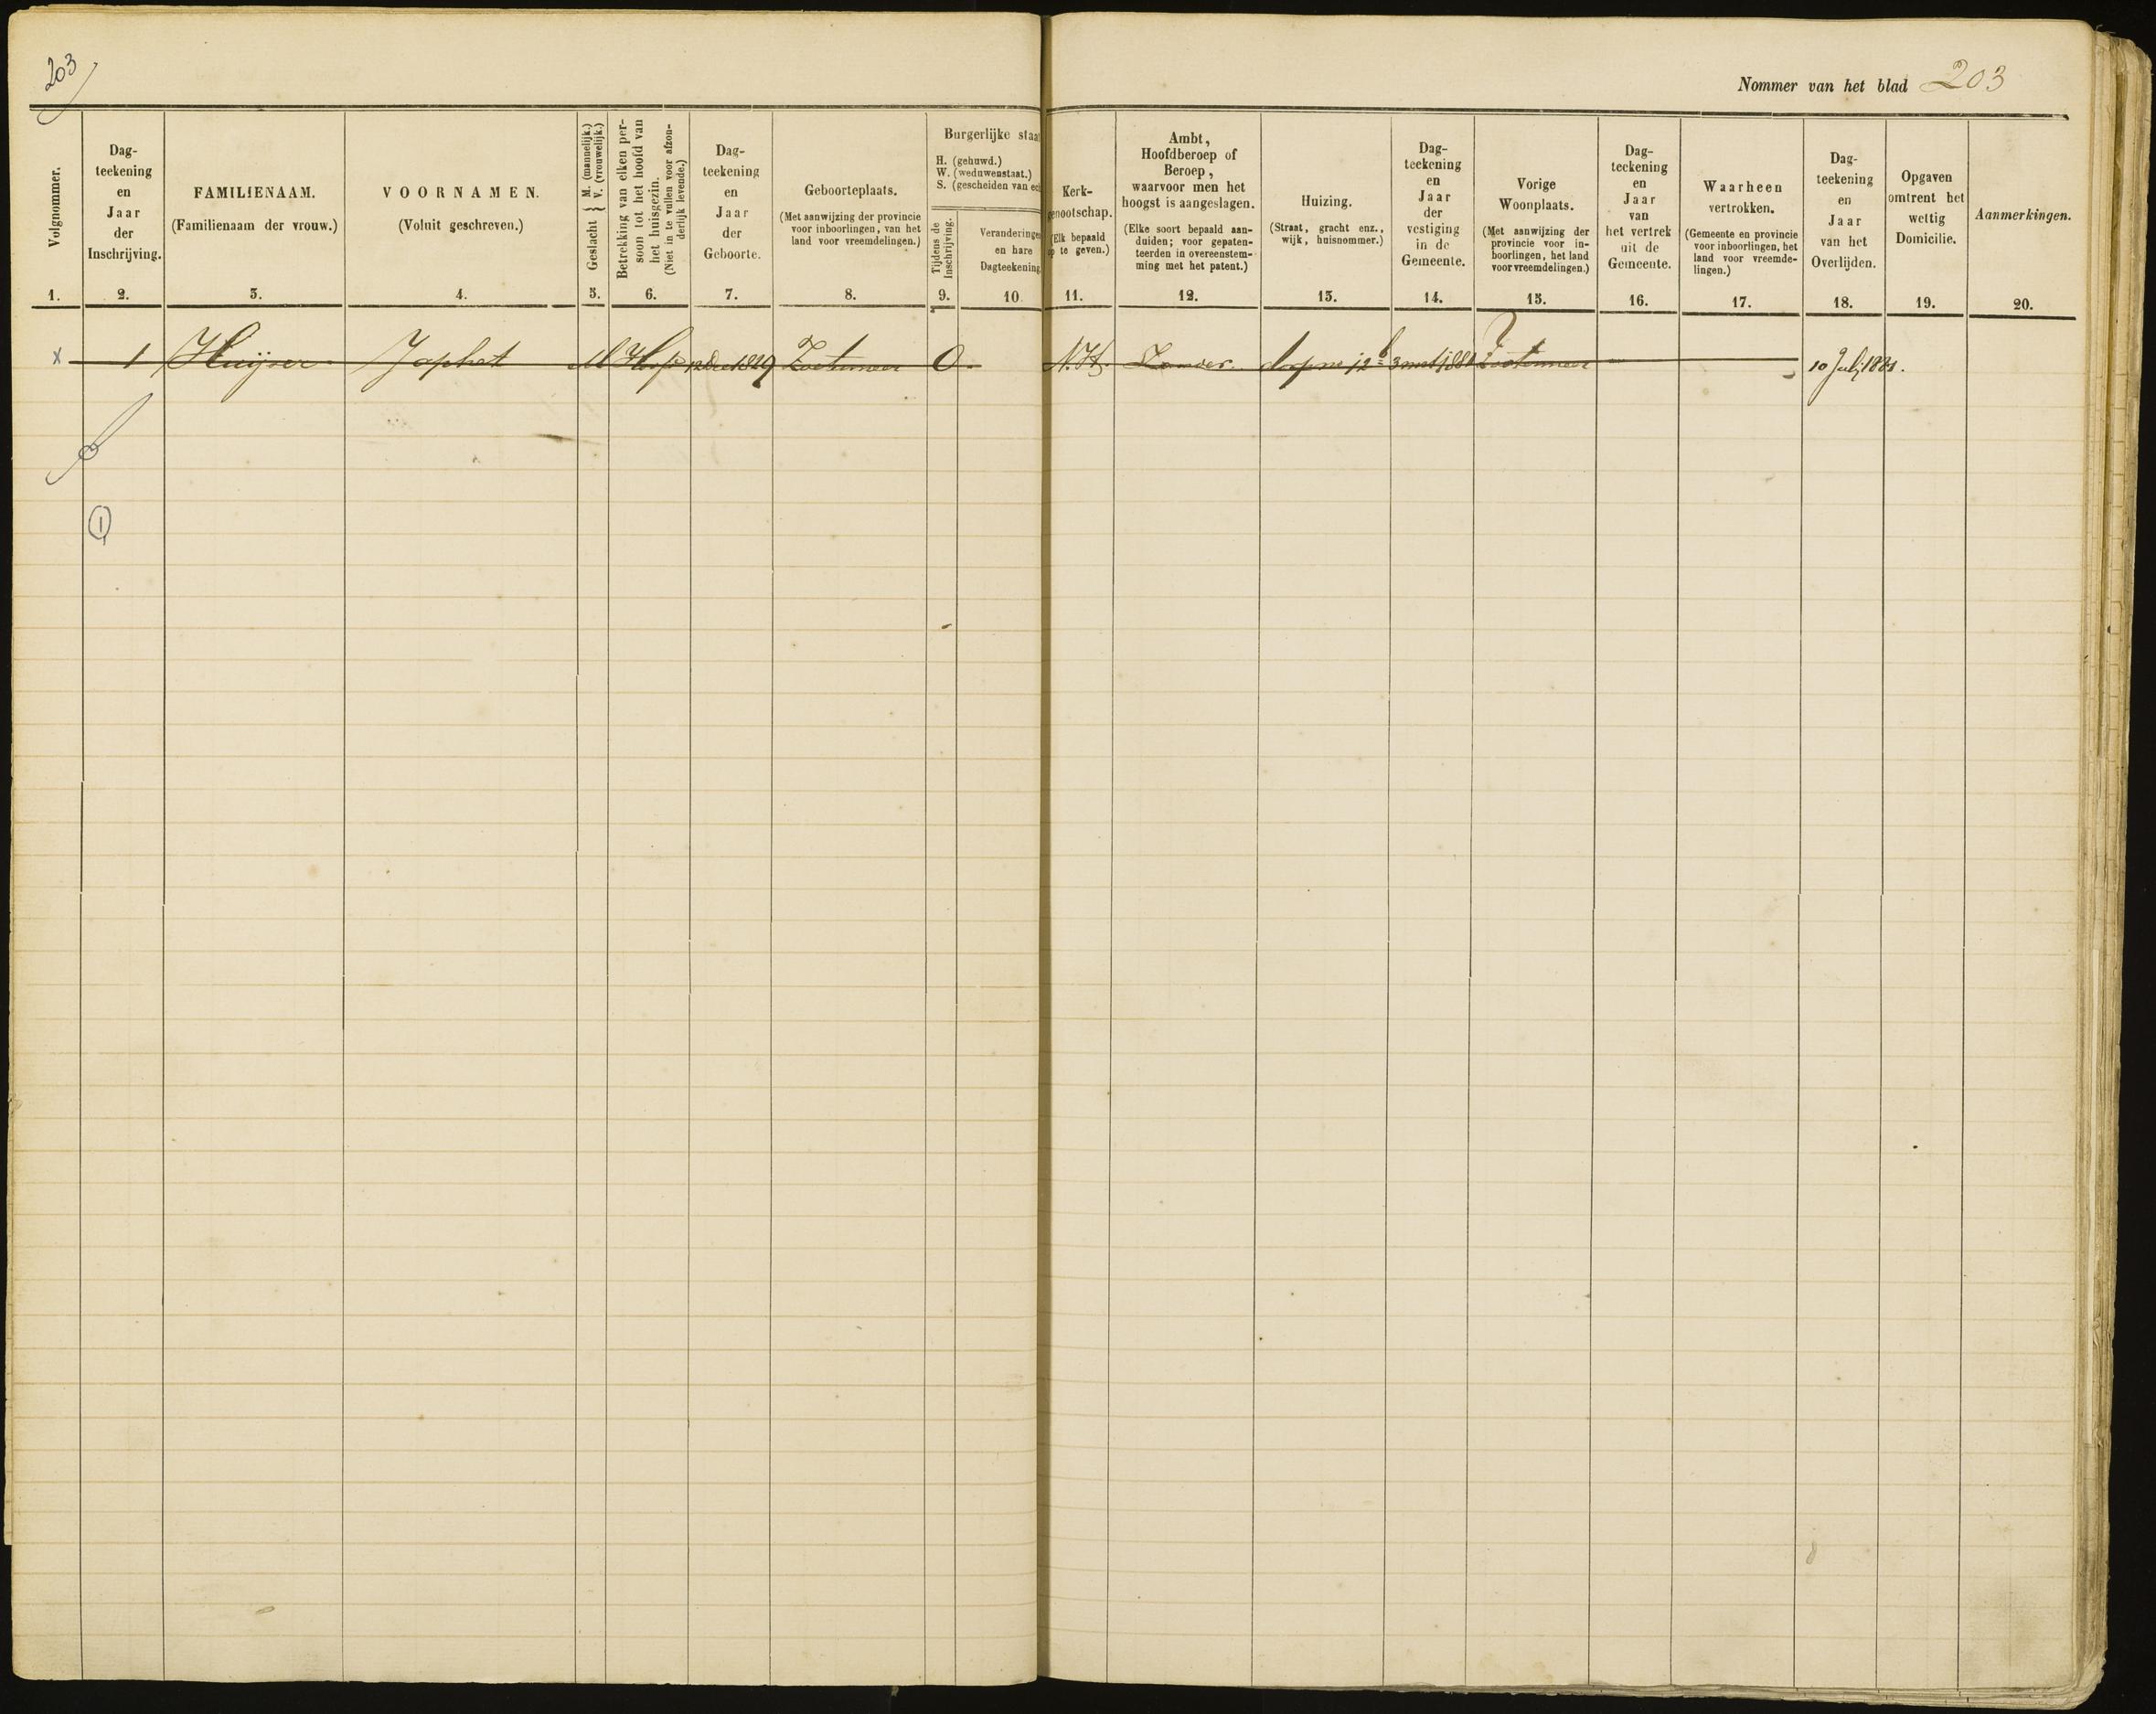 203
Nommer van het blad 203
Volgnommer.
1.
Dag-
teekening
en
Jaar
der
Inschrijving.
2.
FAMILIENAAM.
(Familienaam der vrouw.)
3.
VOORNAMEN.
(Voluit geschreven.)
4.
Geslacht { M. (mannelijk.)
V. (vrouwelijk.)
5.
Betrekking van elken per-
soon tot het hoofd van
het huisgezin.
(Niet in te vullen voor afzon-
derlijk levende.)
6.
Dag-
teekening
en
Jaar
der
Geboorte.
7.
Geboorteplaats.
(Met aanwijzing der provincie
voor inboorlingen, van het
land voor vreemdelingen.)
8.
Burgerlijke staa
H. (gehuwd.)
W. (weduwenstaat.)
S. (gescheiden van ec
Tijdens de
Inschrijving.
9.
Veranderinge
en hare
Dagteekening
10.
Kerk-
genootschap.
(Elk bepaald
op te geven.)
11.
Ambt,
Hoofdberoep of
Beroep,
waarvoor men het
hoogst is aangeslagen.
(Elke soort bepaald aan-
duiden; voor gepaten-
teerden in overeenstem-
ming met het patent.)
12.
Huizing.
(Straat, gracht enz.,
wijk, huisnommer.)
13.
Dag-
teekening
en
Jaar
der
vestiging
in de
Gemeente.
14.
Vorige
Woonplaats.
(Met aanwijzing der
provincie voor in-
boorlingen, het land
voor vreemdelingen.)
15.
Dag-
teekening
en
Jaar
van
het vertrek
uit de
Gemeente.
16.
Waarheen
vertrokken.
(Gemeente en provincie
voor inboorlingen, het
land voor vreemde-
lingen.)
17.
Dag-
teekening
en
Jaar
van het
Overlijden.
18.
Opgaven
omtrent het
wettig
Domicilie.
19.
Aanmerkingen.
20.
x 1 Huijser Japhet M Hoofd 12 Dec 1829 Zoetermeer O. N.H. Zonder dorp 12b 3 mrt 1881 Zoetermeer 10 July 1881.
1